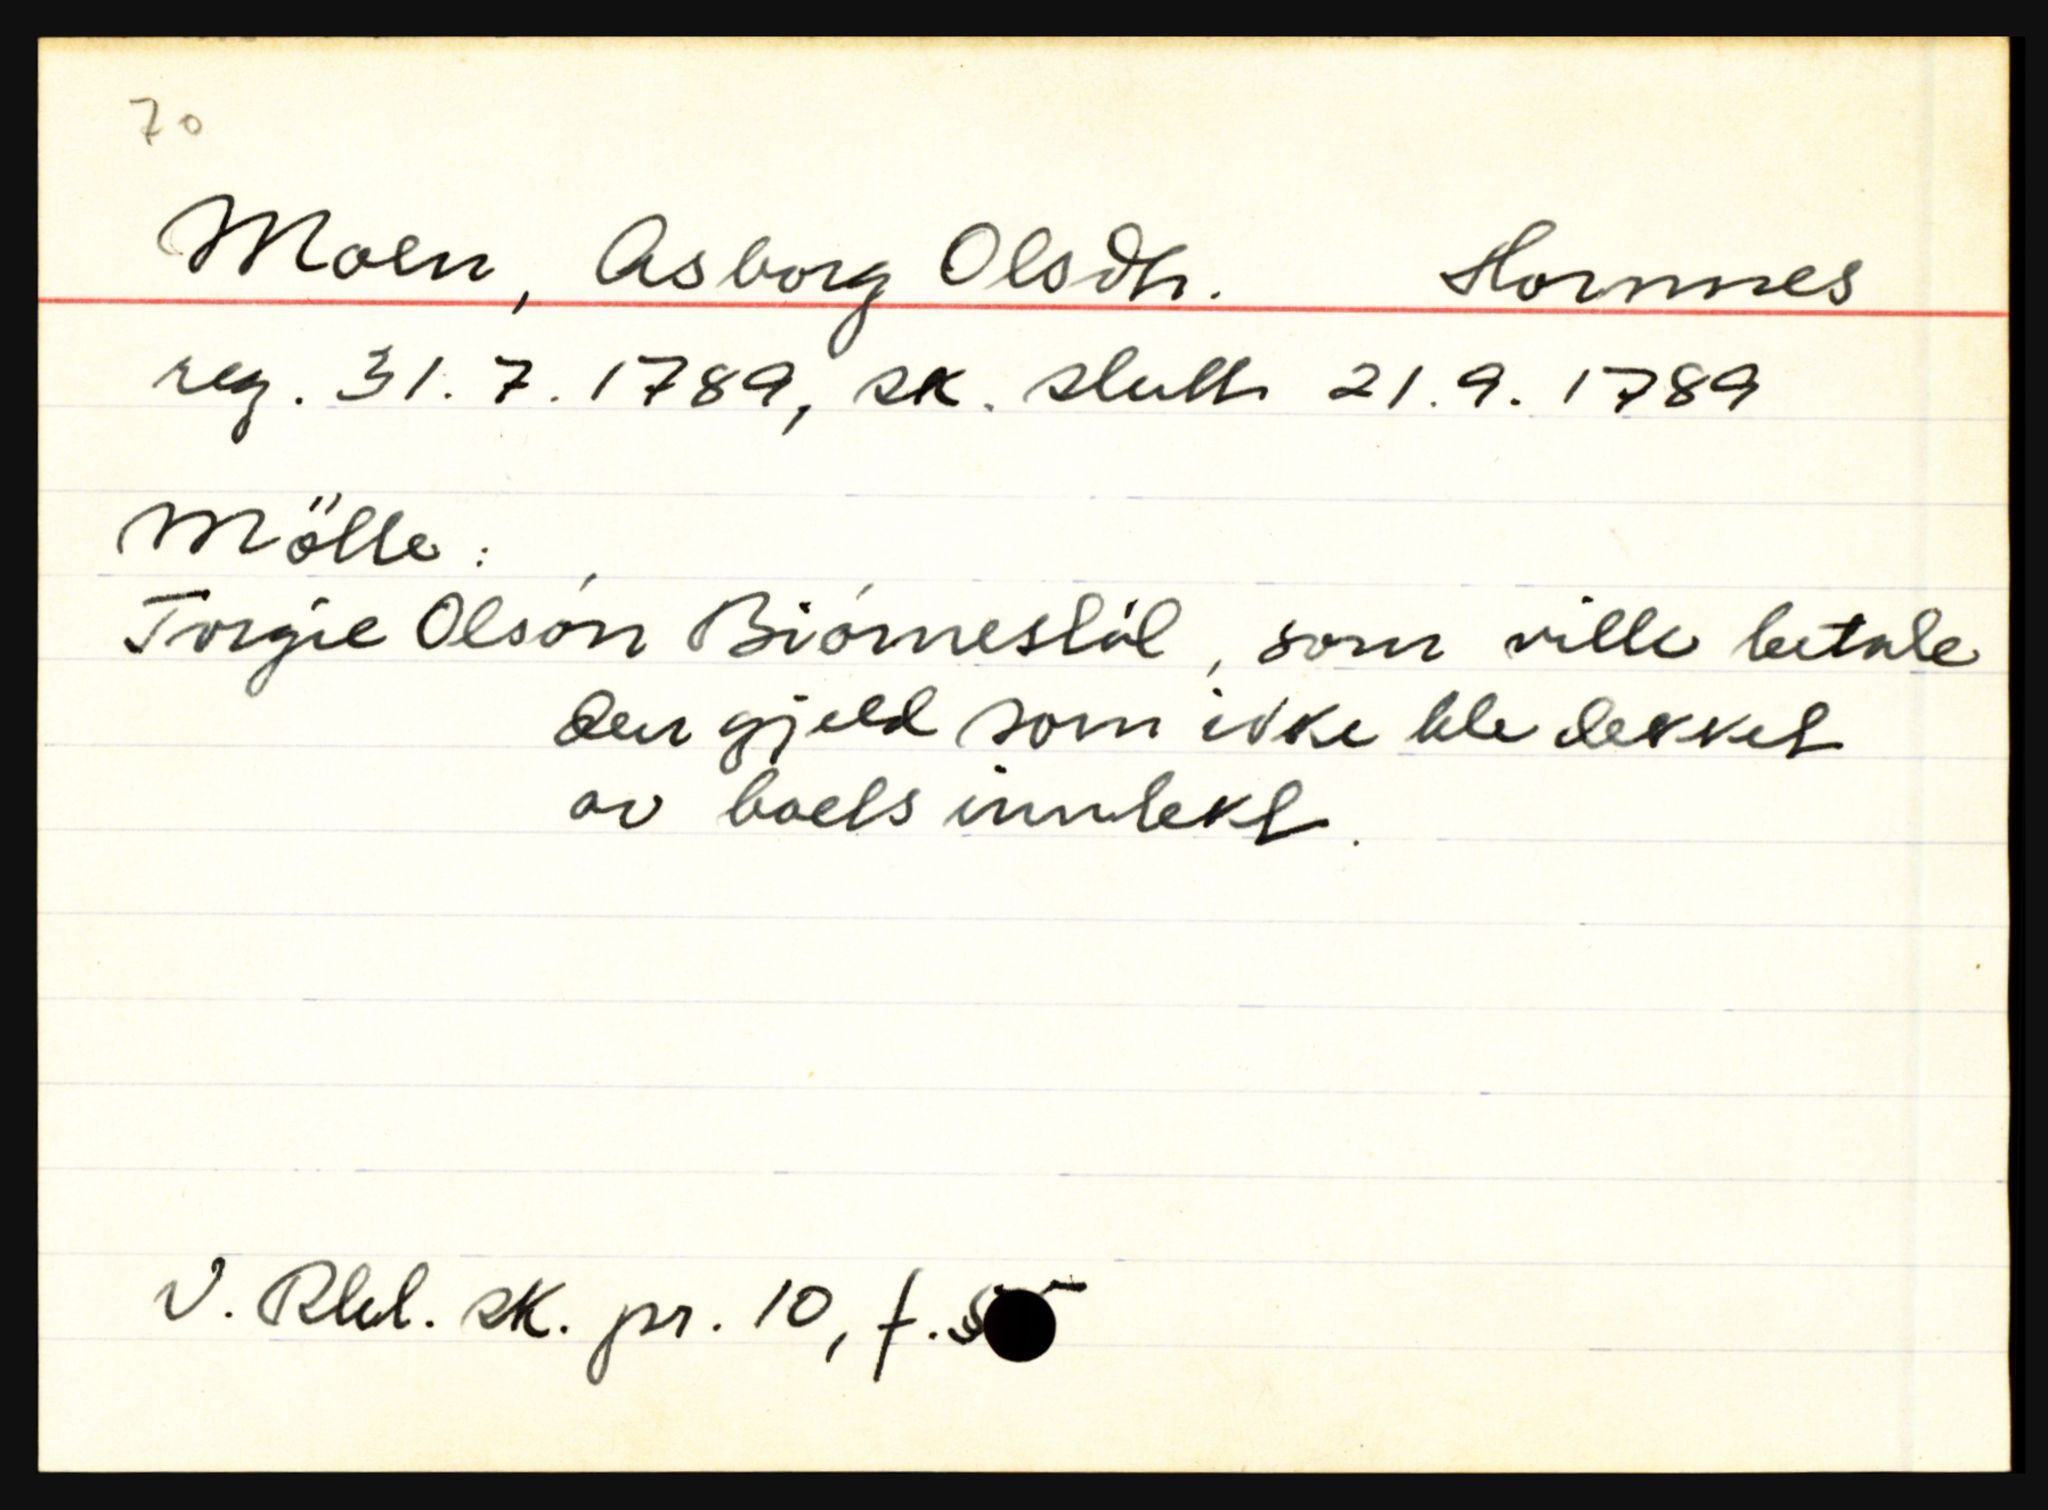 70
Moen, Asborg Olsdtr. Hornnes
reg. 31.7.1789, sk. slutt 21.9.1789
Mötte:
Torgie Olsón Biórnestöl, som ville betale
den gjeld som ikke ble dekket
av boets inntekt.
V. Rbd. sk. pr. 10, f.